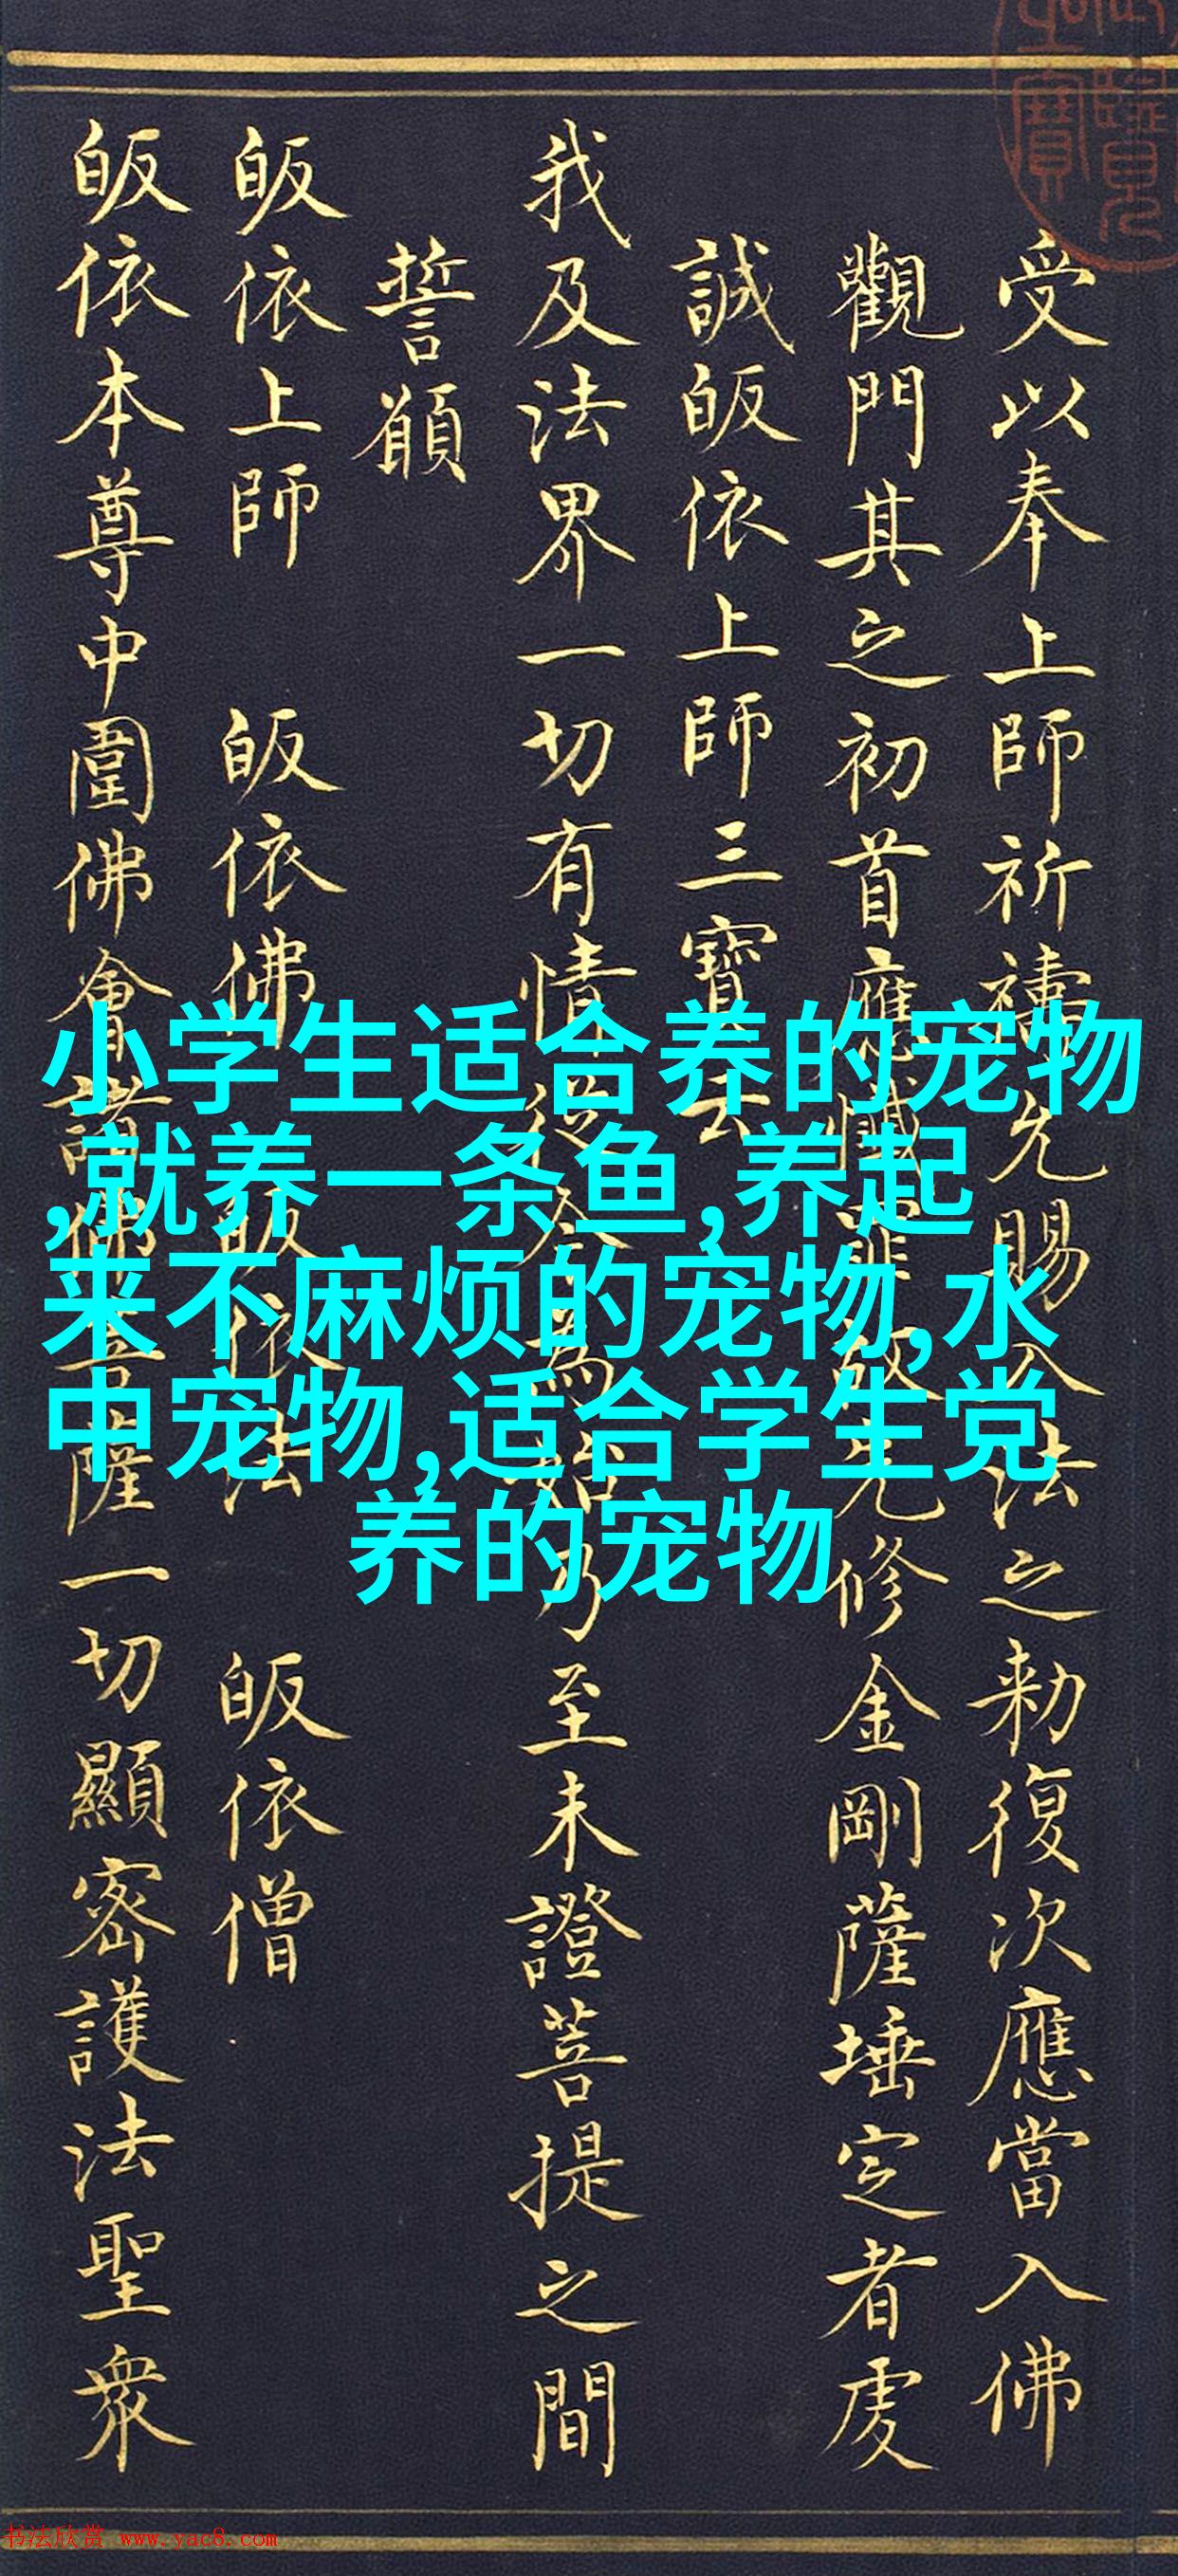 受以奉上師祈禱先賜入法之勅復次應當入佛
觀門其之初首應懺罪故先修金剛薩埵定者虔
誠皈依上師三寶云
我及法界一切有情從今為始乃至未證菩提之間
誓願
皈依上師 皈依佛 皈依法 皈依僧
皈依本尊中圍佛會諸佛菩薩一切顯密護法聖眾
小学生适合养的宠物
,就养一条鱼,养起
来不麻烦的宠物,水
中宠物,适合学生党
养的宠物
书法欣赏 www.yac8.com